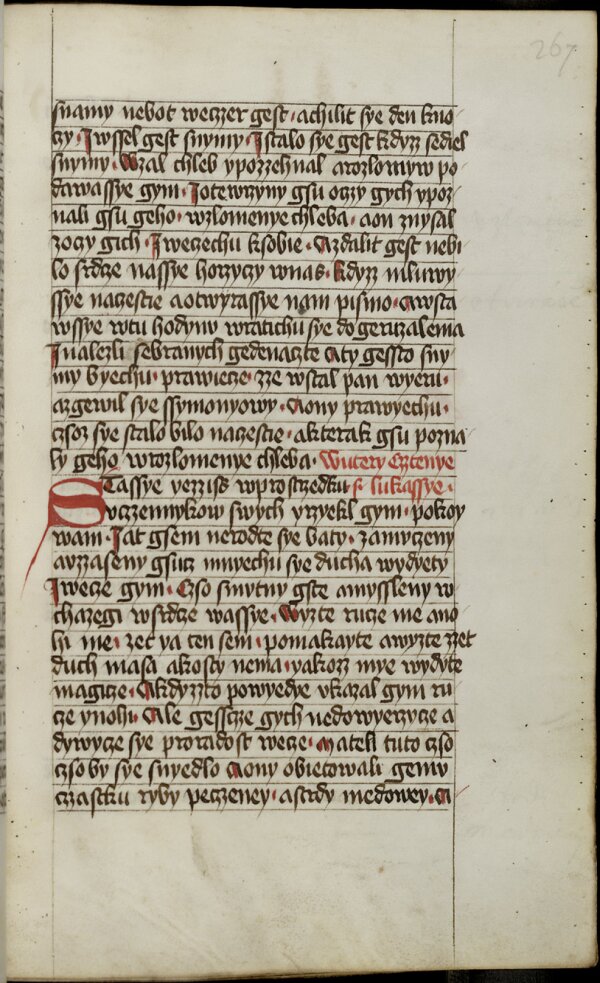 267
snamy nebot weczzer gest · achilil sye den kno
czy · I wssel gest snymy · I stalo sye gest kdyzz sediel
snymy · Wzal chleb ypozzehnal arozlomyw po
dawassye gym · I otewrzyny gsu oczy gych ypoz
nali gsu geho · wzlomenye chleba · aon zmysal
zoczy gich · I weczechu ksobie · Azdalit gest nebi
lo srdcze nassye horzyczy wnas · kdyzz mluwy
ssye naczestie aotwyrassye nam pismo · Awsta
wssye wtu hodynu wratichu sye do geruzalema
I nalezli sebranych gedenaczte Aty gessto sny
my byechu · prawiecze · zze wstal pan wyeru ·
azgewil sye ssymonyowy · Aony prawyechu ·
czsoz sye stalo bilo naczestie · akterak gsu pozna
ly geho wrozlomenye chleba · Wutery Cztenye
STassye gezziss wprostrzedku s· lukassye ·
vczzennykow swych yrzyekl gym · pokoy
wam · Iat gsem nerodte sye baty · zamuczeny
auzzaseny gsucz mnyechu sye ducha wydyety
I wecze gym · Czso smutny gste amyssleny w
chazegi wsrdcze wassye · Wyzte rucze me ano
hi me · zet ya ten sem · pomakayte awyzte zzet
duch masa akosty nema · yakozz mye wydyte
magicze · Akdyzzto powyedye vkazal gym ru
cze ynohi · Ale gesscze gych nedowyerzycze a
dywycze sye proradost wecze · Mateli tuto czso
czso by sye snyedlo Aony obietowali gemu
czzastku ryby peczzeney · astrdy medowey · A